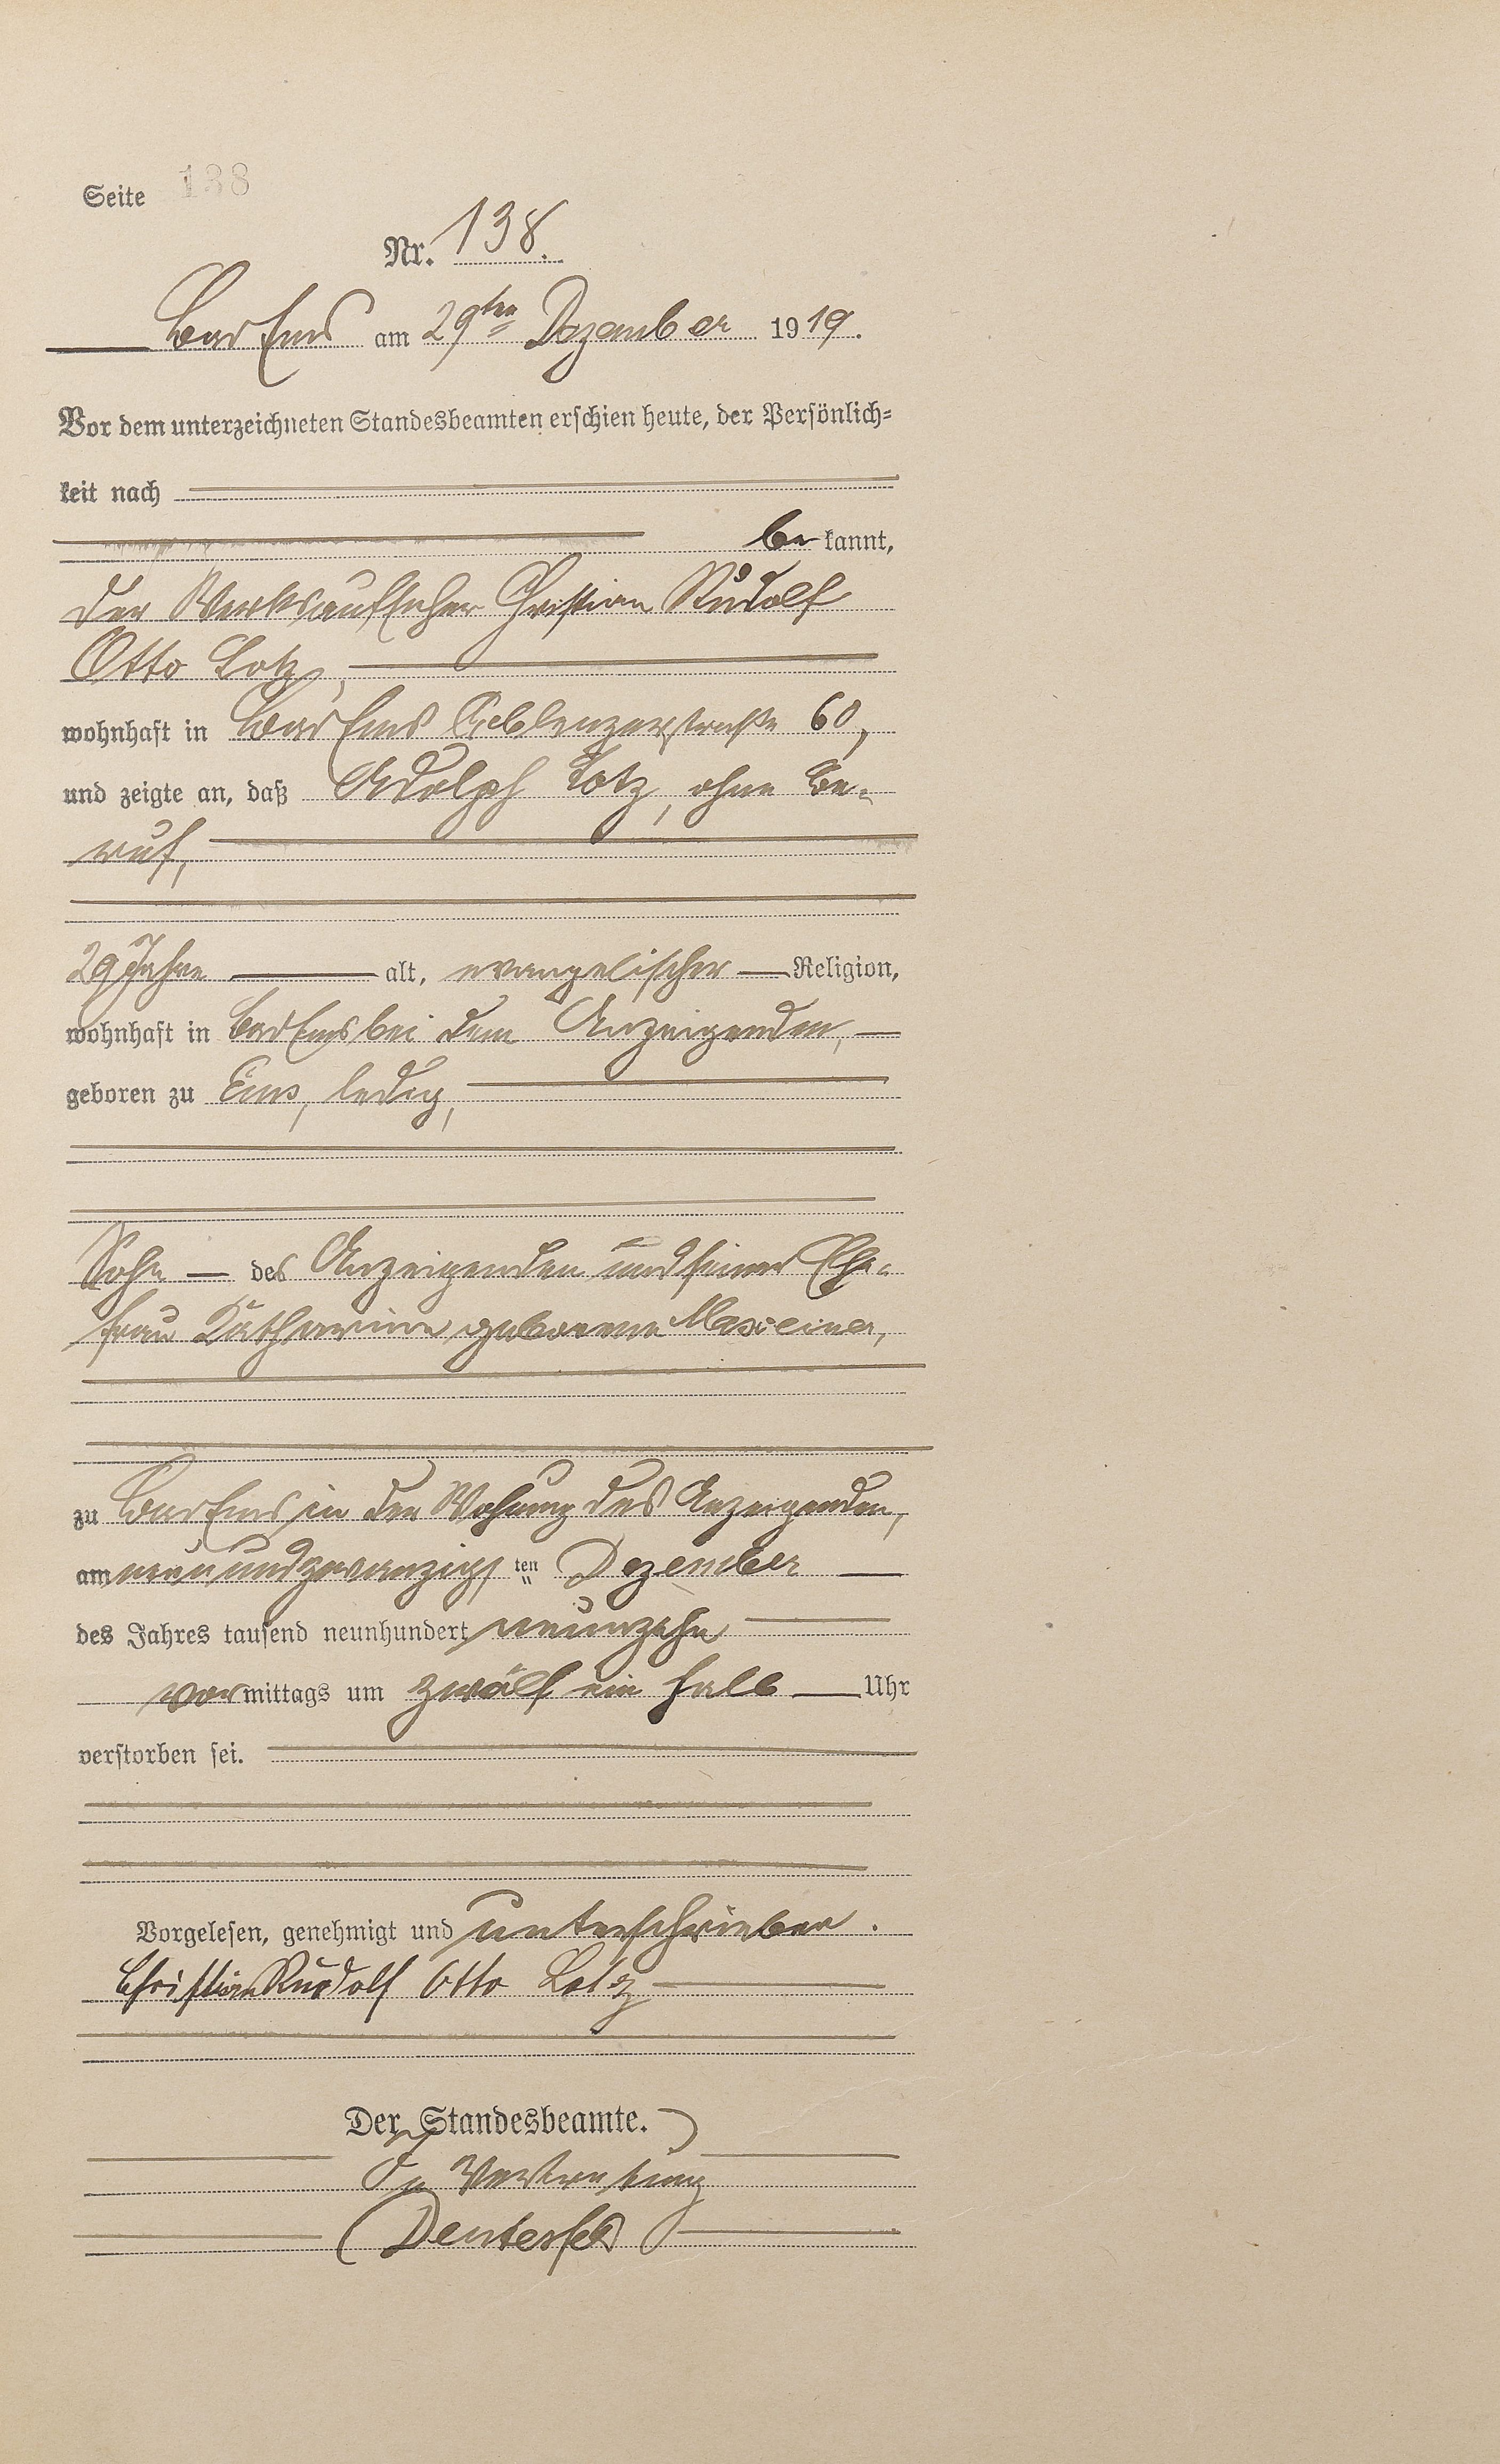 Seite 138
Nr. 138.
Bad Ems am 29ten Dezember 1919.
Vor dem unterzeichneten Standesbeamten erschien heute, der Persönlich-
keit nach
be kannt,
der Werksaufseher Christian Rudolf
Otto Lotz,
wohnhaft in Bad Ems Coblenzerstraße 60,
und zeigte an, daß Adolph Lotz, ohne Be-
ruf,
29 Jahre alt, evangelischer Religion,
wohnhaft in Bad Ems bei dem Anzeigenden,
geboren zu Ems, ledig,
Sohn des Anzeigenden und seiner Ehe-
frau Katharine geborene Maxeiner,
zu Bad Ems in der Wohnung des Anzeigenden,
am neunundzwanzigsten Dezember
des Jahres tausend neunhundert neunzehn
vormittags um zwölf ein halb Uhr
verstorben sei.
Vorgelesen, genehmigt und unterschrieben.
Christian Rudolf Otto Lotz
Der Standesbeamte.
In Vertretung